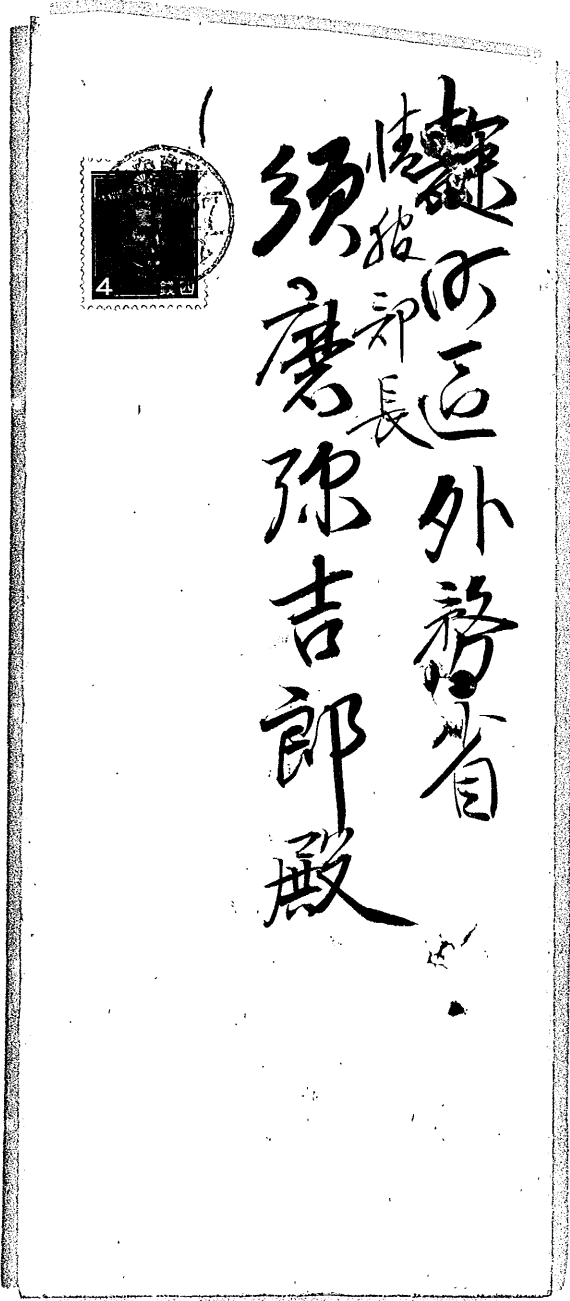 麹町區外務省
情報部長
須磨弥吉郎殿
4
銭四